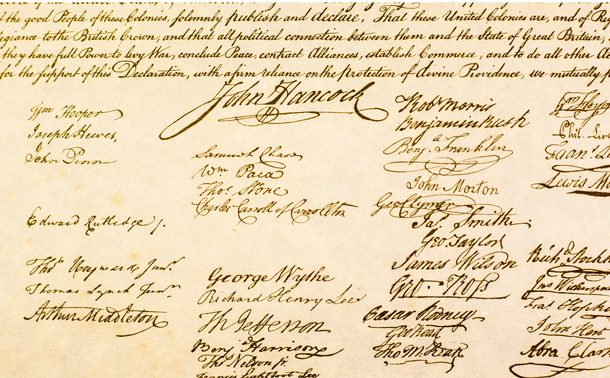 the good People of these Colonies, solemnly publish and declare, That these United Colonies are, and of
to the British Crown, and that all political connection between them and the State of Great Britain,
they have full Power to levy War, conclude Peace, contract Alliances, establish Commerce, and to do all other
for the support of this Declaration, with a firm reliance on the Protection of divine Providence, we mutually
John Hancock
Wm Hooper
Joseph Hewes,
John Penn
Edward Rutledge /.
Thos Heyward Junr.
Thomas Lynch Junr.
Arthur Middleton
Samuel Chase
Wm Paca
Thos. Stone
Charles Carroll of Carrollton
George Wythe
Richard Henry Lee
Th Jefferson
Benj Harrison
Thos Nelson jr.
Francis Lightfoot Lee
Robt Morris
Benjamin Rush
Benj. Franklin
John Morton
Geo Clymer
Jas. Smith
Geo. Taylor
James Wilson
Geo. Ross
Caesar Rodney
Geo Read
Tho M:Kean
Phil.
Lewis
Richd. Stockton
Jno Witherspoon
Fras. Hopkinson
John Hart
Abra Clark